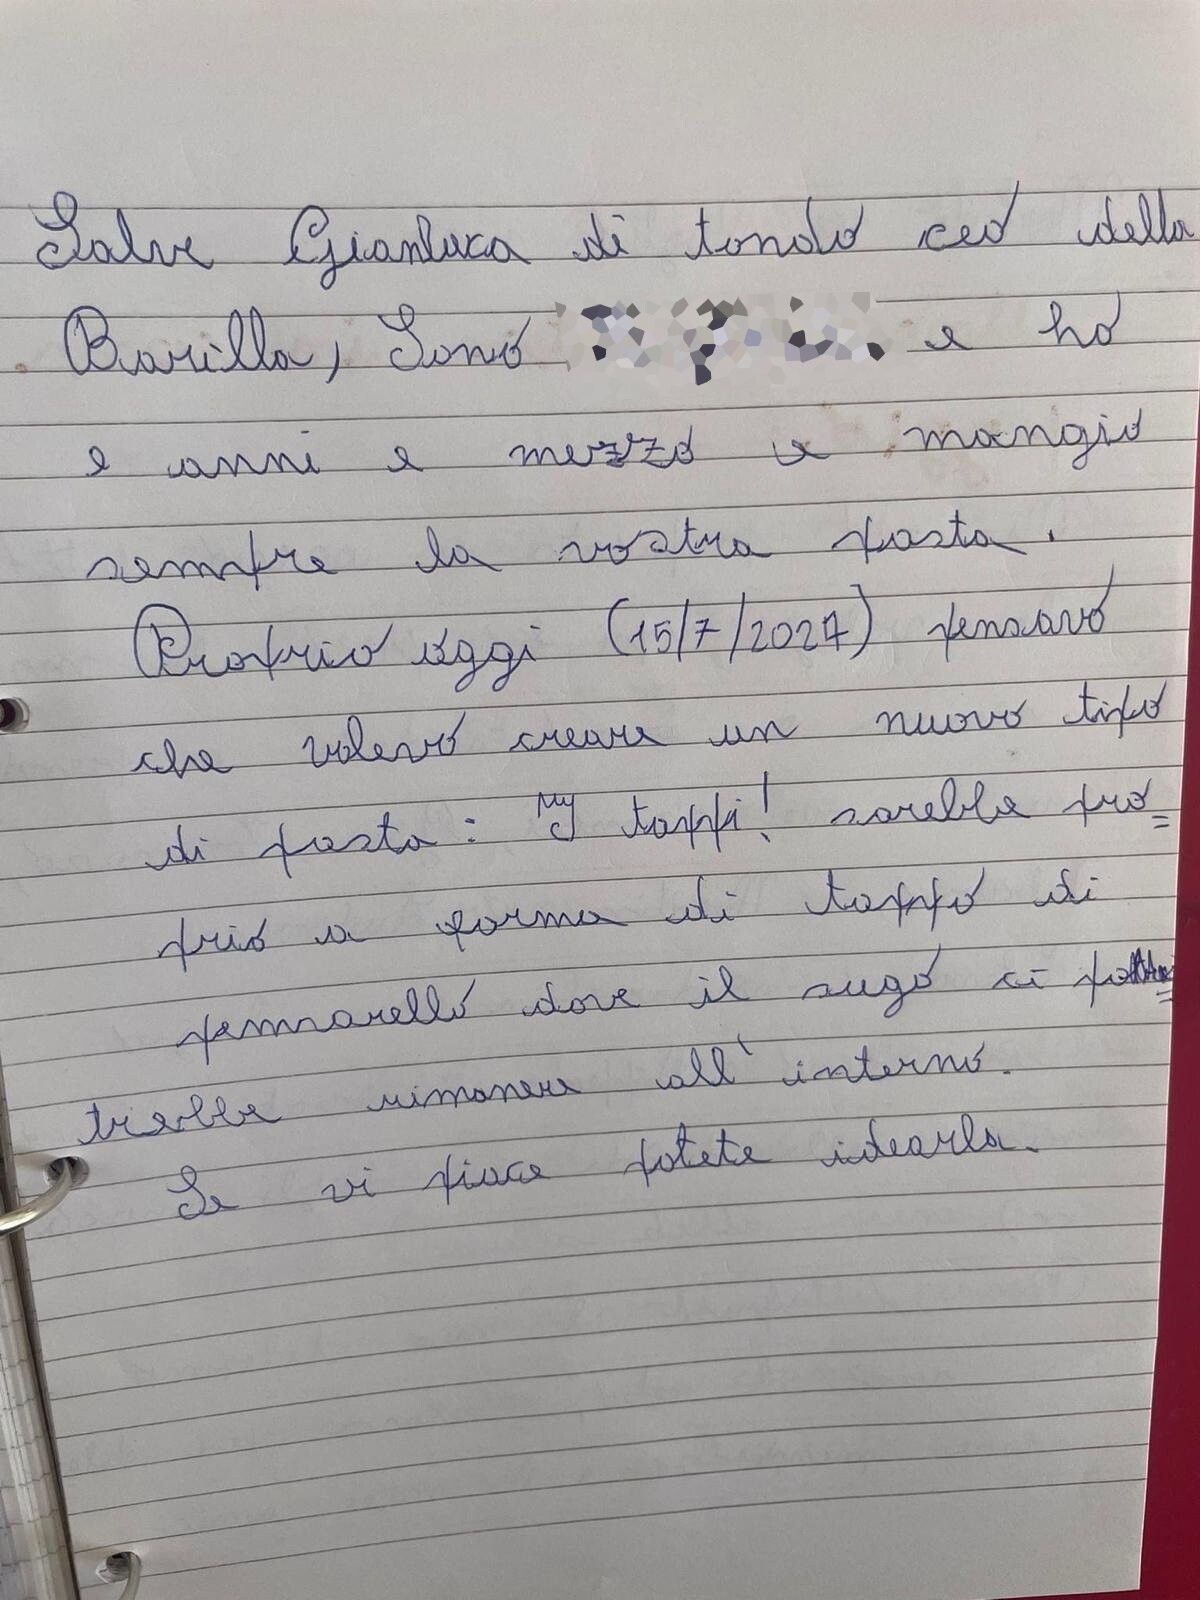 Salve Gianluca di tondo ceo della
Barilla, Sono e ho
e anni e mezzo e mangio
sempre la vostra pasta.
Proprio oggi (15/7/2024) pensavo
che volevo creare un nuovo tipo
di pasta: My tappi! sarebbe pro=
prio a forma di tappo di
pennarello dove il sugo ci po=
trebbe rimanere all'interno.
Se vi piace potete idearla.